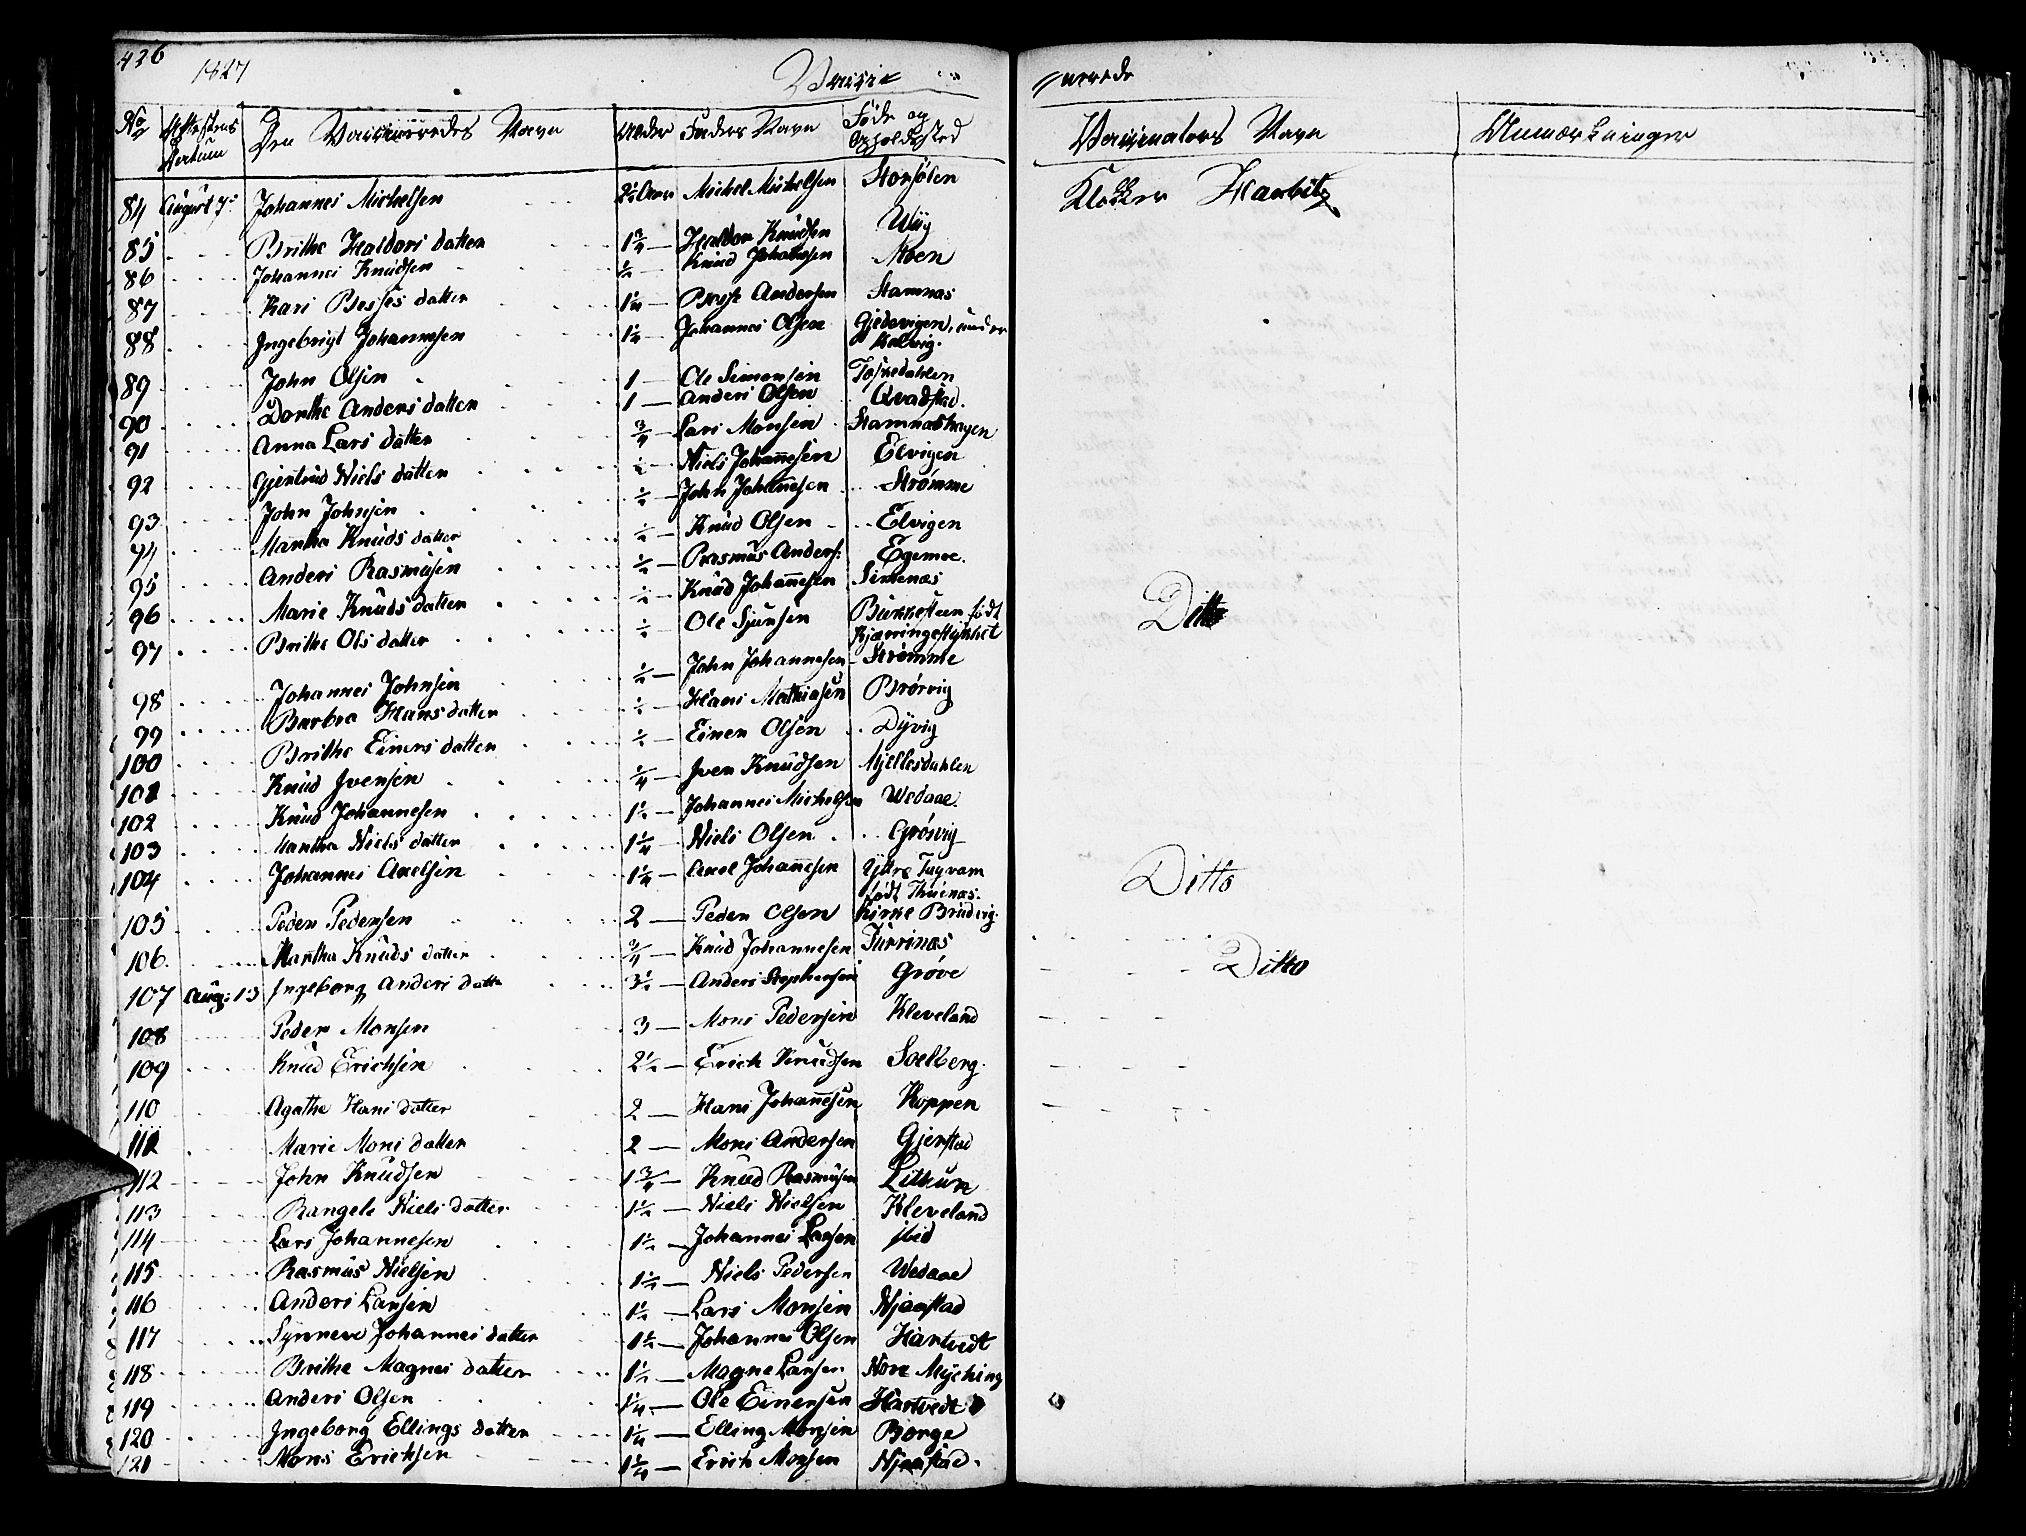 436
1827 Vacci- nerede
No Attestens Datum Den Vaccineredes Navn Alder Faders Navn Føde og Opholdssted Vaccinators Navn Anmærkninger
84 August 7: Johannes Michelsen 2½ Aar Michel Michelsen Storsølen Klokker Harbitz
85 Brithe Haldors datter 1¾ — Haldor Knudsen Wiig
86 Johannes Knudsen ½ — Knud Johannesen Moen
87 Kari Besses datter 1½ — Andersen Stamnæs
88 Ingebrigt Johannesen 1½ — Johannes Olsen Gjedevigen, under Kalvig.
89 John Olsen 1 — Ole Simensen Toskedahlen
90 Dorthe Anders datter 1 — Anders Olsen Qvadstad.
91 Anna Lars datter ¾ — Lars Monsen Stamnæshagen
92 Gjertrud Niels datter ½ — Niels Johannesen Elvigen
93 John Johnsen ½ — John Johannesen Strømme
94 Martha Knuds datter ½ — Knud Olsen Elvigen
95 Anders Rasmusen ½ — Rasmus Anders: Egemoe.
96 Marie Knuds datter ½ — Knud Johannesen Simenæs Ditto
97 Brithe Ols datter ½ — Ole Sjursen født Kjærringestykket
98 Johannes Johnsen ½ — John Johannesen Strømme
99 Barbra Hans datter ½ — Hans Mathiasen Brørvig
100 Brithe Einers datter ½ — Einer Olsen Dyvig
101 Knud Iversen ¼ — Iver Knudsen Mjellesdahlen
102 Knud Johannesen 1½ — Johannes Michelsen Wedaae.
103 Martha Niels datter 1¼ — Niels Olsen Grøsvig
104 Johannes Axelsen 1¼ — Axel Johannesen Yttre født Thunæs. Ditto
105 Peder Pedersen 2 — Peder Olsen Kirke Brudvig.
106 Martha Knuds datter ¾ — Knud Johannesen Turrinæs
107 Aug: 13 Ingeborg Anders datter 3½ — Anders Stephensen Grøve Ditto
108 Peder Monsen 3 — Mons Pedersen Kleveland
109 Knud Erichsen 2½ — Erich Knudsen Soelberg.
110 Agathe Hans datter 2 — Hans Johannesen Koppen
111 Marie Mons datter 2 — Mons Andersen Gjerstad
112 John Knudsen 1¾ — Knud Rasmusen Lithun
113 Rangele Niels datter 1½ — Niels Nielsen Kleveland
114 Lars Johannesen 1½ — Johannes Larsen ibid
115 Rasmus Nielsen 1½ — Niels Pedersen Wedaae
116 Anders Larsen 1½ — Lars Monsen Njaastad
117 Synneve Johannes datter 1½ — Johannes Olsen Hartvedt
118 Brithe Magnes datter 1½ — Magne Larsen Nore Myching
119 Anders Olsen 1¼ — Ole Einersen Hartvedt
120 Ingeborg Ellings datter 1¼ — Elling Monsen Borge
121 Mons Erichsen 1¼ — Erich Monsen Njaastad.